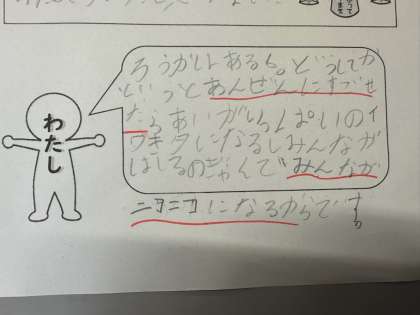 ろうかはあるく。どうしてか
というとあんぜんにすごせ
たら、あいがいっぱいのイ
ウキタになるしみんなが
はしるのぎゃくでみんなが
ニコニコになるからです。
わたし